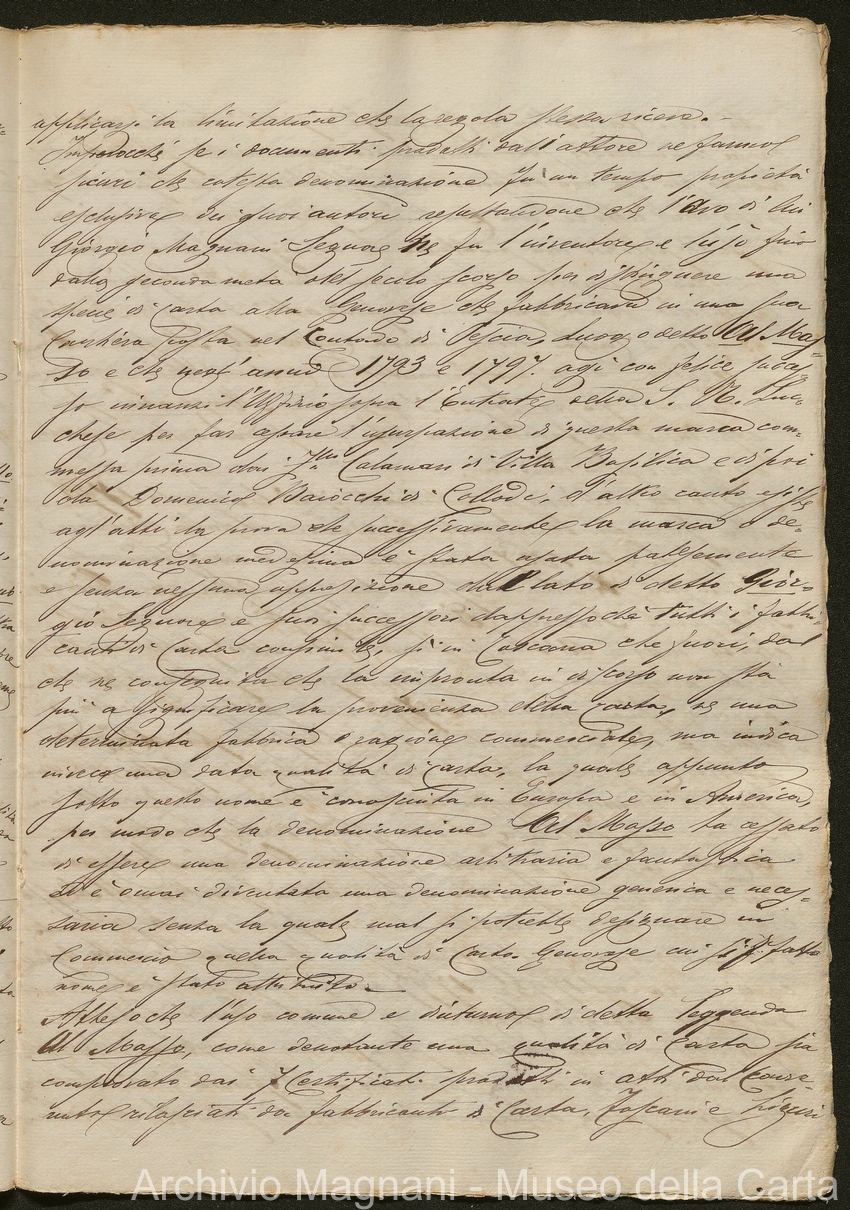 applicarsi la limitazione che la regola stessa riceve.–
Imperocchè se i documenti prodotti dall'attore ne fanno
sicuri che cotesta denominazione fu un tempo proprietà
esclusiva dei suoi autori resultandone che l'avo di lui
Giorgio Magnani Seguore ne fu l'inventore e l'usò fino
dalla seconda metà del secolo scorso per distinguere una
specie di carta alla Genovese che fabbricava in una sua
Cartiera posta nel Contado di Pescia, luogo detto Al Mas=
so e che negl'anni 1793 e 1797. agì con felice succes=
so innanzi l'Uffizio sopra l'Entrate della S. R. Luc=
chese per far cessare l'usurpazione di questa marca com=
messa prima dai Calamari di Villa Basilica e di poi
da Domenico Baiocchi di Collodi, d'altro canto esiste
agl'atti la prova che successivamente la marca o de=
nominazione medesima è stata usata palesemente
e senza nessuna opposizione dal lato di detto Gior=
gio Seguore e suoi successori dappresso che tutti i fabbri=
canti di Carta consimile, sì in Toscana che fuori, dal
che ne conseguita che la impronta in discorso non sta
più a significare la provenienza della carta, da una
determinata fabbrica o ragione commerciale, ma indica
invece una data qualità di carta, la quale appunto
sotto questo nome è conosciuta in Europa e in America,
per modo che la denominazione Al Masso ha cessato
di essere una denominazione arbitraria e fantastica
ed è omai diventata una denominazione generica e neces=
saria senza la quale mal si potrebbe designare in
Commercio quella qualità di Carta Genovese cui sif=fatto
nome è stato attribuito.–
Attesochè l'uso comune e diuturno di detta leggenda
Al Masso, come denotante una qualità di Carta sia
comprovato dai Certificati prodotti in atti dal Conve=
nuto rilasciati da fabbricanti di Carta, Toscani e Liguri
Archivio Magnani - Museo della Carta